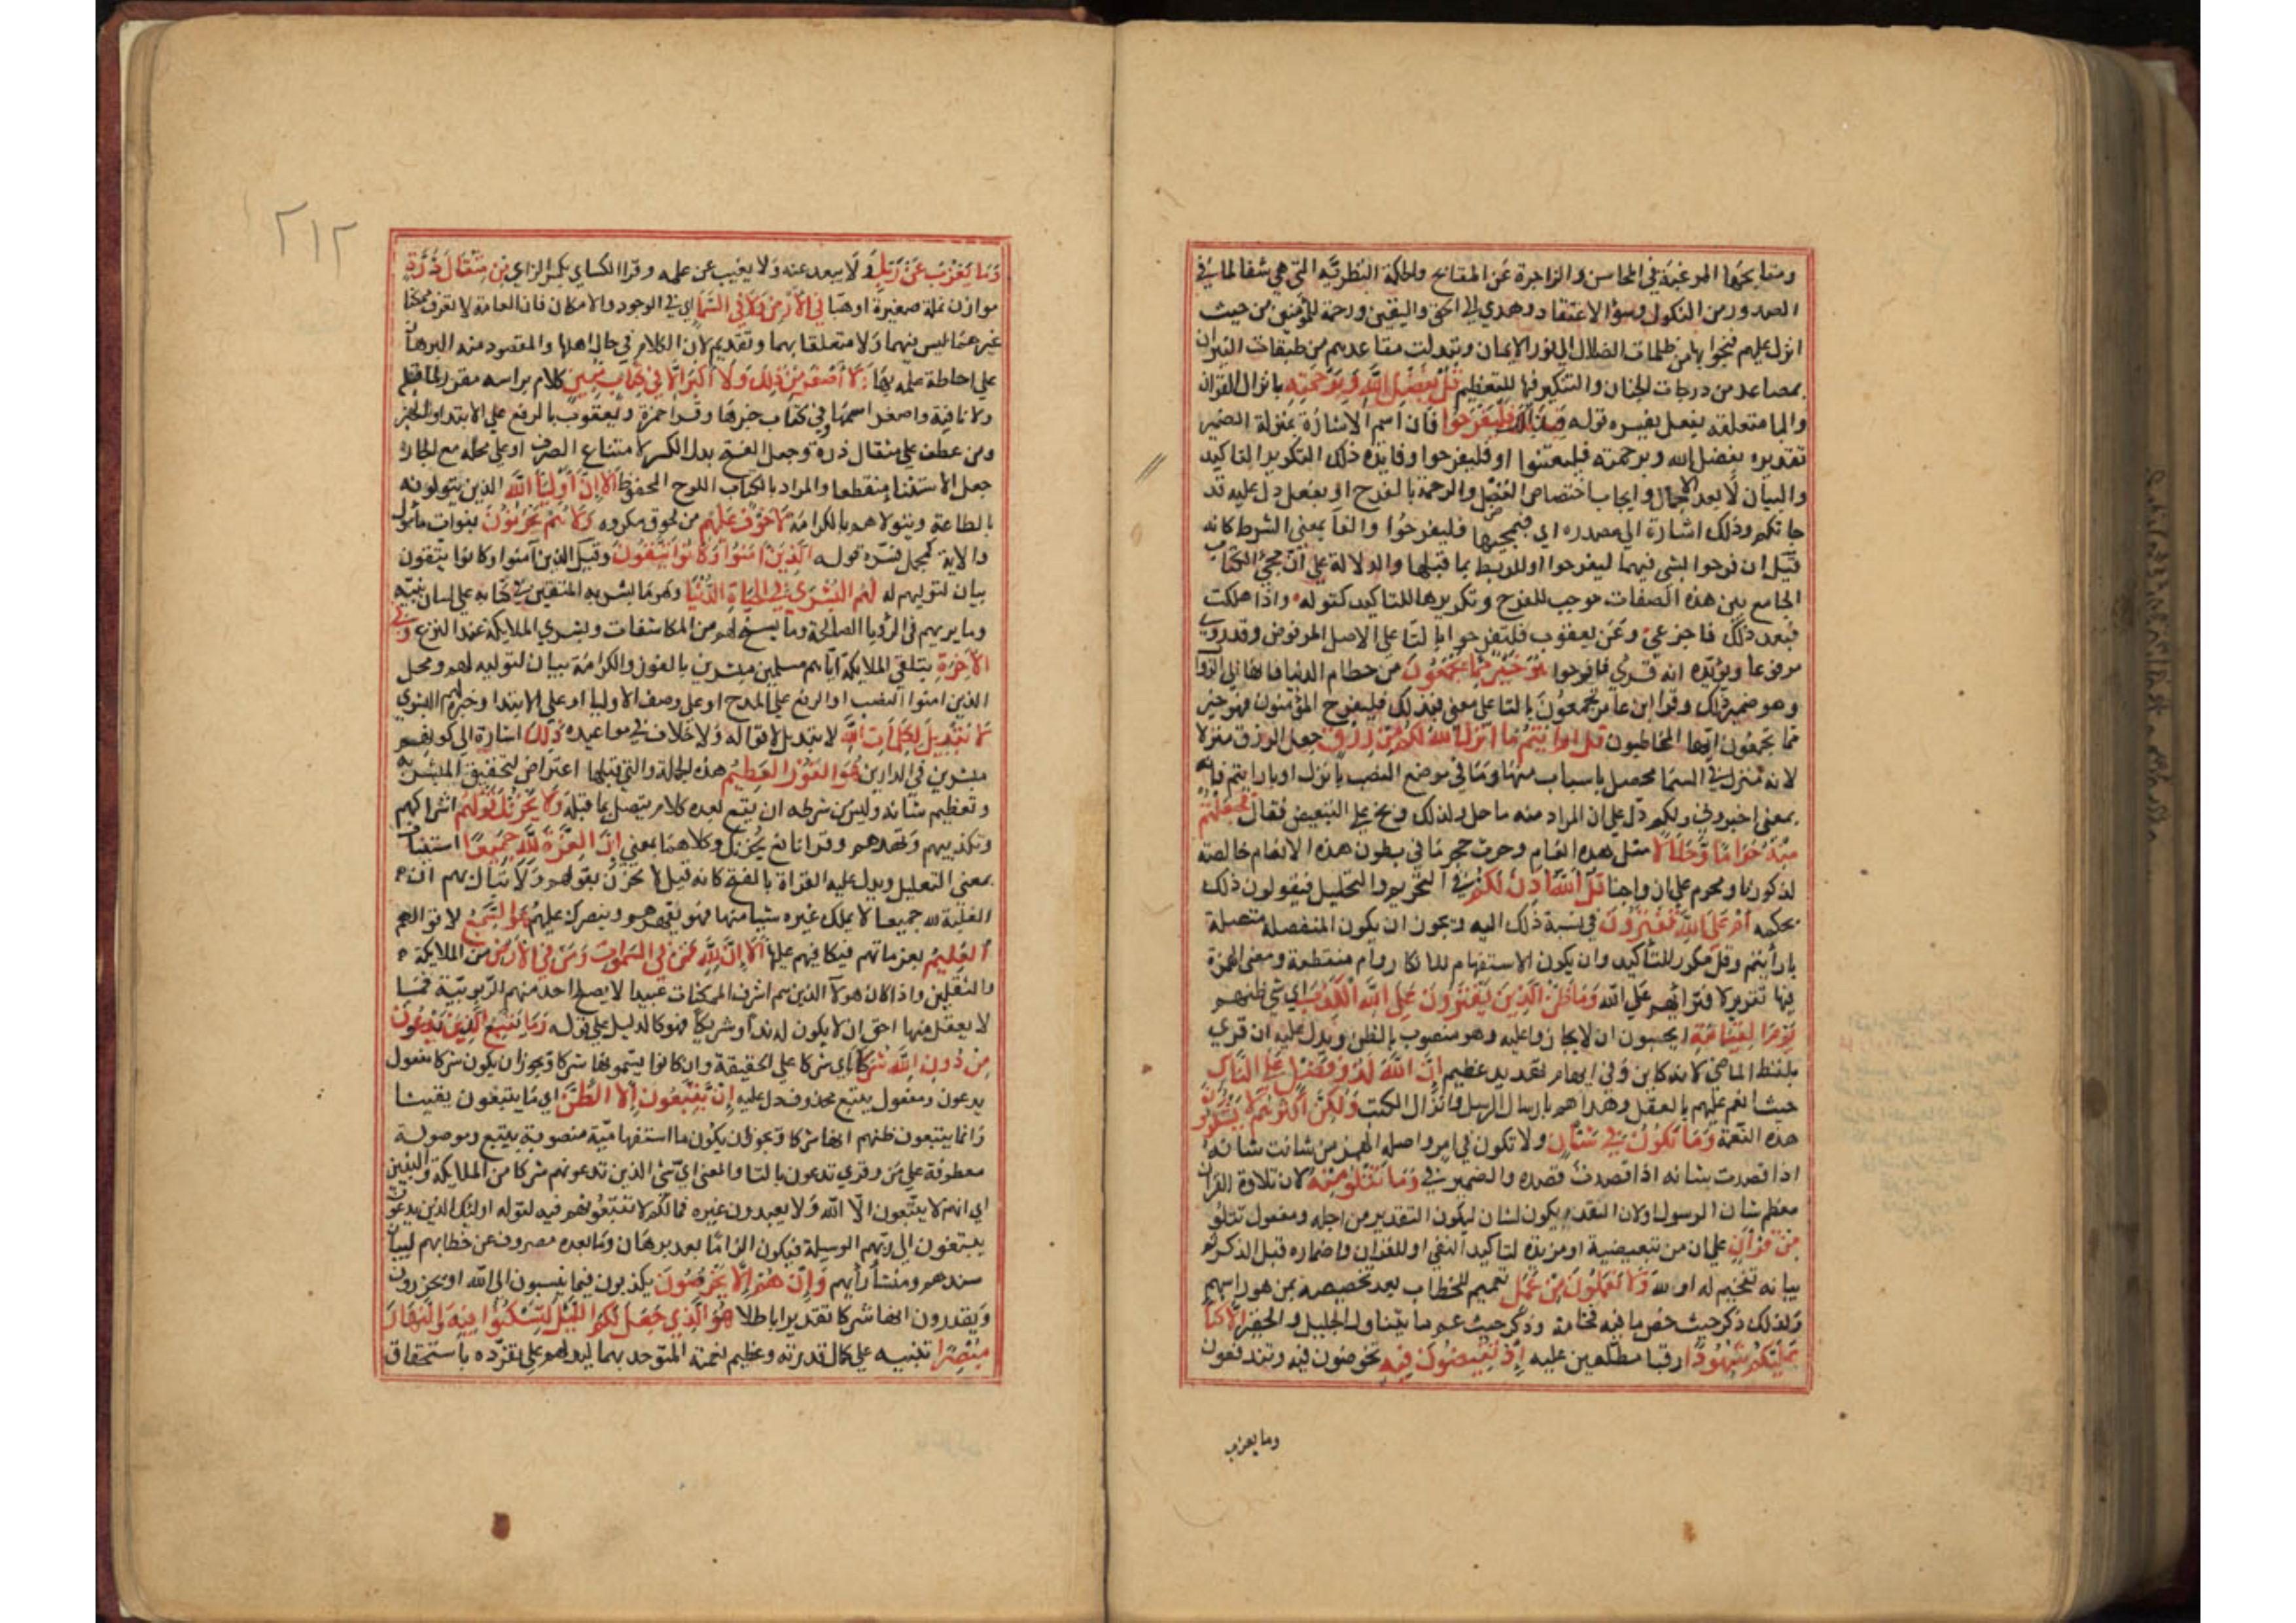 ومقابحها المرغبة في المحاسن والزاجرة عن المقابح والحكمة النظرية التي هي شفا لما في
الصدور من الشكوك وسؤ الاعتقاد وهدي الي الحق واليقين ورحمة للمؤمنين من حيث
انزل عليهم فنجوا بها من ظلمات الضلال الي نور الايمان وتبدلت مقاعدهم من طبقات النيران
بمصاعد من درجات الجنان والتنكير فيها للتعظيم قُلْ بِفَضْلِ اللَّهِ وَبِرَحْمَتِهِ بانزال القران
والبا متعلقة بفعل يفسره قوله فَبِذَلِكَ فَلْيَفْرَحُوا فان اسم الاشارة بمنزلة الضمير
تقديره بفضل الله وبرحمته فليعتنوا او فليفرحوا وفايدة ذلك التكرير التاكيد
والبيان بعد الاجمال وايجاب اختصاص الفضل والرحمة بالفرح او بفعل دل عليه قد
جاتكم وذلك اشارة الي مصدره اي فبمجيئها فليفرحوا والفا بمعني الشرط كانه
قيل ان فرحوا بشي فبهما ليفرحوا او للربط بما قبلها والدلالة علي ان مجئ الكتاب
الجامع بين هذه الصفات موجب للفرح وتكريرها للتاكيد كقوله واذا هلكت
فبعد ذلك فاجزعي وعن يعقوب فلتفرحوا بالتا علي الاصل المرفوض وقد روي
مرفوعا ويؤيده انه قري فافرحوا هُوَ خَيْرٌ مِمَّا يَجْمَعُونَ من حطام الدنيا فانها الي الزوال
وهو ضمير ذلك وقرا ابن عامر تجمعون بالتا علي معني فبذلك فليفرح المؤمنون فهو خير
مما تجمعون ايها المخاطبون قُلْ أَرَأَيْتُمْ مَا أَنْزَلَ اللَّهُ لَكُمْ مِنْ رِزْقٍ جعل الرزق منزلا
لانه مقدر في السما محصل باسباب منها وما في موضع النصب بانزل او بارايتم فانه
بمعني اخبروني ولكم دل علي ان المراد منه ما حل ولذلك وبخ علي التبعيض فقال فَجَعَلْتُمْ
مِنْهُ حَرَامًا وَحَلَالًا مثل هذه انعام وحرث حجر ما في بطون هذه الانعام خالصة
لذكورنا ومحرم علي ازواجنا قُلْ آللَّهُ أَذِنَ لَكُمْ في التحريم والتحليل فيقولون ذلك
بحكمه أَمْ عَلَى اللَّهِ تَفْتَرُونَ في نسبة ذلك اليه ويجوز ان يكون المنفصلة متصلة
بارأيتم وقل مكرر للتأكيد وان يكون الاستفهام للانكار وام منقطعة ومعني الهمزة
فيها تقرير لافترائهم علي الله وَمَا ظَنُّ الَّذِينَ يَفْتَرُونَ عَلَى اللَّهِ الْكَذِبَ اي شي ظنهم
يَوْمَ الْقِيَامَةِ ايحسبون ان لا يجازوا عليه وهو منصوب بالظن ويدل عليه ان قري
بلفظ الماضي لانه كاين وفي ابهام تهديد عظيم إِنَّ اللَّهَ لَذُو فَضْلٍ عَلَى النَّاسِ
حيث انعم عليهم بالعقل وهداهم بارسال الرسل وانزال الكتب وَلَكِنَّ أَكْثَرَهُمْ لَا يَشْكُرُونَ
هذه النعمة وَمَا تَكُونُ فِي شَأْنٍ ولا تكون في امر واصله الهمز من شانت شانه
اذا قصدت بشانه اذا قصدت قصده والضمير في وَمَا تَتْلُو مِنْهُ لان تلاوة القران
معظم شان الرسول او لان القراة يكون لشان ليكون التقدير من اجله ومفعول تتلو
مِنْ قُرْآنٍ علي ان من تبعيضية او مزيدة لتاكيد النفي او للقران واضماره قبل الذكر ثم
بيانه تفخيم له او لله وَلَا تَعْمَلُونَ مِنْ عَمَلٍ تعميم للخطاب بعد تخصيصه بمن هو راسهم
ولذلك ذكر حيث خص ما فيه فخامة وذكر حيث عم ما يتناول الجليل والحقير إِلَّا كُنَّا
عَلَيْكُمْ شُهُودًا رقبا مطلعين عليه إِذْ تُفِيضُونَ فِيهِ تخوضون فيه وتندفعون
وما يعزب
٢١٢
وَمَا يَعْزُبُ عَنْ رَبِّكَ ولا يبعد عنه ولا يغيب عن علمه وقرا الكساي بكسر الزاي مِنْ مِثْقَالِ ذَرَّةٍ
موازن نملة صغيرة او هبا فِي الْأَرْضِ وَلَا فِي السَّمَا اي في الوجود والامكان فان العامة لا تعرف ممكنا
غيرهما ليس فيهما ولا متعلقا بهما وتقديم لان الكلام في حال اهلها والمقصود منه البرهان
علي احاطة علمه بها وَلَا أَصْغَرَ مِنْ ذَلِكَ وَلَا أَكْبَرَ إِلَّا فِي كِتَابٍ مُبِينٍ كلام براسه مقرر لما قبله
ولا نافية واصغر اسمها وفي كتاب خبرها وقرا حمزة ويعقوب بالرفع علي الابتدا والخبر
ومن عطف علي مثقال ذرة وجعل الفتح بدل الكسر لامتناع الصرف او علي محله مع الجار
جعل الاستثنا منقطعا والمراد بالكتاب اللوح المحفوظ أَلَا إِنَّ أَوْلِيَا اللَّهِ الذين يتولونه
بالطاعة ويتولاهم بالكرامة لَا خَوْفٌ عَلَيْهِمْ من لحوق مكروه وَلَا هُمْ يَحْزَنُونَ بفوات مأمول
والاية كمجمل فسره قوله الَّذِينَ آمَنُوا وَكَانُوا يَتَّقُونَ وقيل الذين آمنوا وكانوا يتقون
بيان لتوليهم له لَهُمُ الْبُشْرَى فِي الْحَيَاةِ الدُّنْيَا وهو ما بشر به المتقين في كتابه علي لسان نبيه
وما يريهم في الرؤيا الصالحة وما يسنح لهم من المكاشفات وبشري الملايكة عند النزع وَفِي
الْآخِرَةِ بتلقي الملايكة اياهم مسلمين مبشرين بالفوز والكرامة بيان لتوليه لهم ومحل
الذين امنوا النصب او الرفع علي المدح او علي وصف الاوليا او علي الابتدا وخبره لهم البشري
لَا تَبْدِيلَ لِكَلِمَاتِ اللَّهِ لا تبديل لاقواله ولا خلاف في مواعيده ذَلِكَ اشارة الي كونهم
مبشرين في الدارين هُوَ الْفَوْزُ الْعَظِيمُ هذه الجملة والتي قبلها اعتراض لتحقيق المبشر به
وتعظيم شانه وليس من شرطه ان يقع بعده كلام يتصل بما قبله وَلَا يَحْزُنْكَ قَوْلُهُمْ اشراكهم
وتكذيبهم وتهددهم وقرا نافع يُحزنك وكلاهما بمعني إِنَّ الْعِزَّةَ لِلَّهِ جَمِيعًا استيناف
بمعني التعليل ويدل عليه القراة بالفتح كانه قيل لا تحزن بقولهم ولا تبال بهم ان
الغلبة لله جميعا لا يملك غيره شيا منها فهو يقهرهم وينصرك عليهم هُوَ السَّمِيعُ لاقوالهم
الْعَلِيمُ بعزماتهم فيكافيهم عليها أَلَا إِنَّ لِلَّهِ مَنْ فِي السَّمَوَاتِ وَمَنْ فِي الْأَرْضِ من الملايكة
والثقلين واذا كان هولآ الذين هم اشرف الممكنات عبيدا لا يصلح احد منهم للربوبية فما
لا يعقل منها احق ان لا يكون له ندا وشريكا فهو كالدليل علي قوله وَمَا يَتَّبِعُ الَّذِينَ يَدْعُونَ
مِنْ دُونِ اللَّهِ شُرَكَا اي شركا علي الحقيقة وان كانوا يسمونها شركا ويجوز ان يكون شركا مفعول
يدعون ومفعول يتبع محذوف دل عليه إِنْ يَتَّبِعُونَ إِلَّا الظَّنَّ اي ما يتبعون يقينا
وانما يتبعون ظنهم انها شركا ويجوز ان يكون ما استفهامية منصوبة بيتبع وموصولة
معطوفة علي من وقري تدعون بالتا والمعني اي شي الذين تدعونهم شركا من الملايكة والنبيين
اي انهم لا يتبعون الا الله ولا يعبدون غيره فمالكم لا تتبعونهم فيه لقوله اوليك الذين يدعون
يبتغون الي ربهم الوسيلة فيكون الزاما بعد برهان وما بعده مصروف عن خطابهم لبيان
سندهم ومنشأ رأيهم وَإِنْ هُمْ إِلَّا يَخْرُصُونَ يكذبون فيما ينسبون الي الله او يحزرون
ويقدرون انها شركا تقديرا باطلا هُوَ الَّذِي جَعَلَ لَكُمُ اللَّيْلَ لِتَسْكُنُوا فِيهِ وَالنَّهَارَ
مُبْصِرًا تنبيه علي كمال قدرته وعظيم نعمته المتوحد بهما ليدلهم علي تفرده باستحقاق